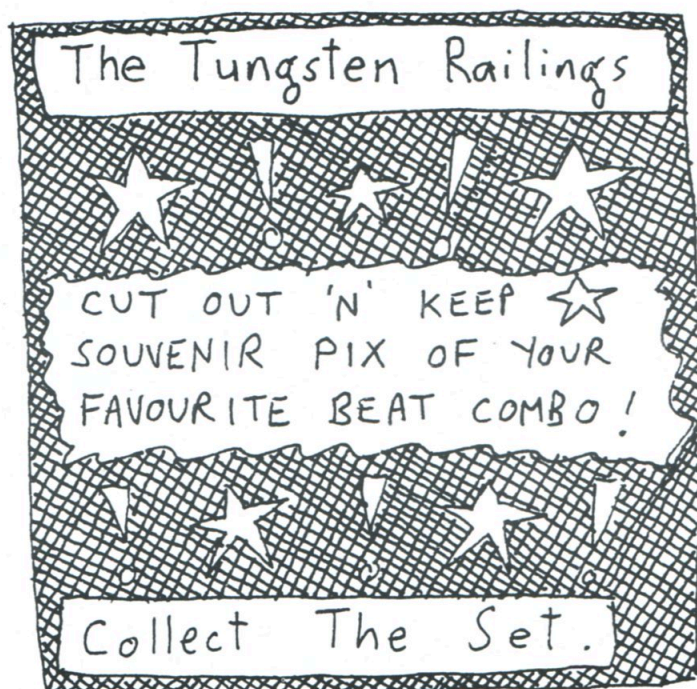 The Tungsten Railings
CUT OUT 'N' KEEP
SOUVENIR PIX OF YOUR
FAVOURITE BEAT COMBO!
Collect The Set.